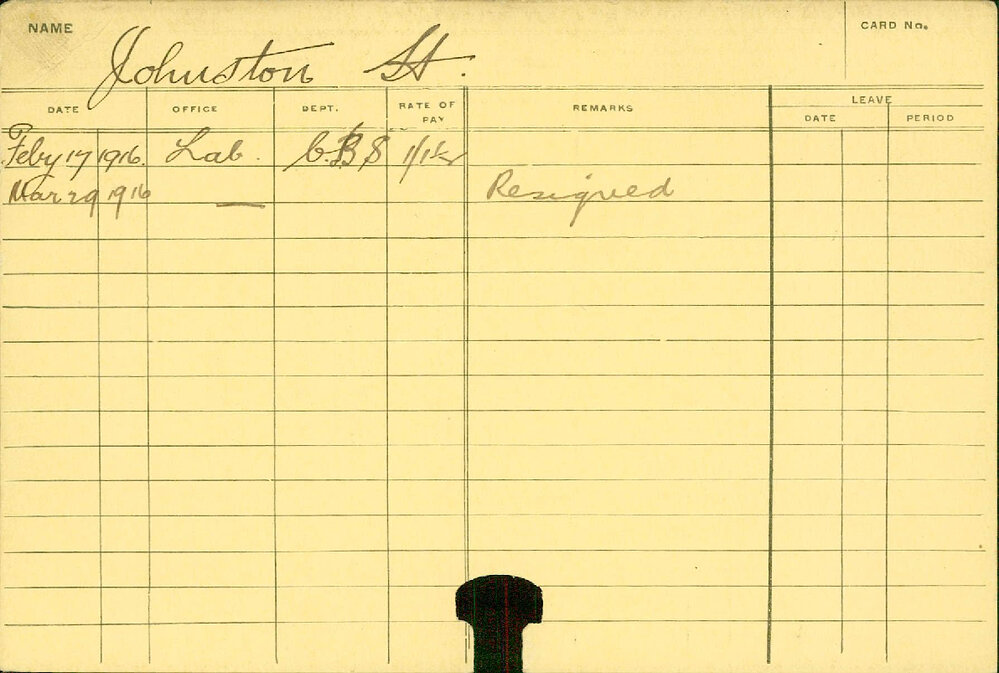 NAME Johnston H. CARD No.
DATE OFFICE DEPT. RATE OF PAY REMARKS LEAVE
DATE PERIOD
Feby 17 1916. Lab. C.B.S
Mar 29 1916 — Resigned